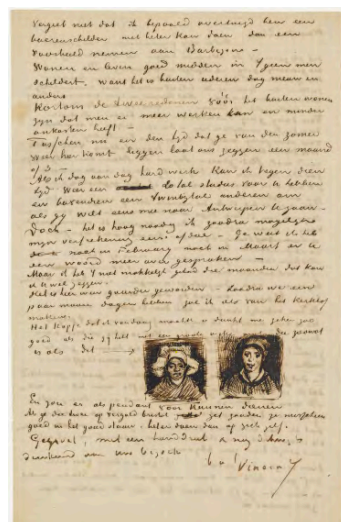 Vergeet niet dat ik bepaald overtuigd ben een
boerenschilder niet beter kan doen dan een
voorbeeld nemen aan Barbizon –
Wonen en leven goed midden in 't geen men
schildert. want het is buiten iederen dag nieuw en
anders
Kortom de twee redenen vóór het buiten wonen
zijn dat men er meer werken kan en minder
onkosten heeft –
Tusschen nu en den tijd dat ge van den zomer
weer hier komt laat ons zeggen een maand
of 3 –
Als ik dag aan dag hard werk kan ik tegen dien
tijd weer een tal studies voor U hebben
en bovendien een twintigtal anderen om
als gij wilt eens mee naar Antwerpen te gaan
Doch – het is hoog noodig ik zoodra mogelijk
mijn verfrekening
naar in Februarij noch in Maart er
een woord meer over gesproken –
Maar ik heb 't niet makkelijk gehad die maanden dat kan
ik U wel zeggen.
Het is hier wat guurder geworden – Zoodra we een
paar mooie dagen hebben zal ik iets van het Kerkhof
maken.
Het Kopje dat ik vandaag maakte
goed als die gij hebt met een groote witte
is als dit
En zou er als pendant van kunnen dienen
goed in het goud staan. beter dan op zich zelf.
Gegroet, met een handdruk
bezoek
b à t Vincent